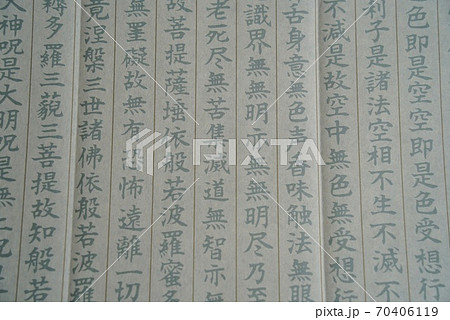 色即是空空即是色受想行
利子是諸法空相不生不滅不
不減是故空中無色無受想行
舌身意無色声香味触法無眼
識界無無明亦無無明尽乃至
老死尽無苦集滅道無智亦無
故菩提薩埵依般若波羅蜜多
無罣礙故無有恐怖遠離一切
竟涅槃三世諸佛依般若波羅
耨多羅三藐三菩提故知般若
大神呪是大明呪是無上呪是
PIXTA
pixta.jp - 70406119